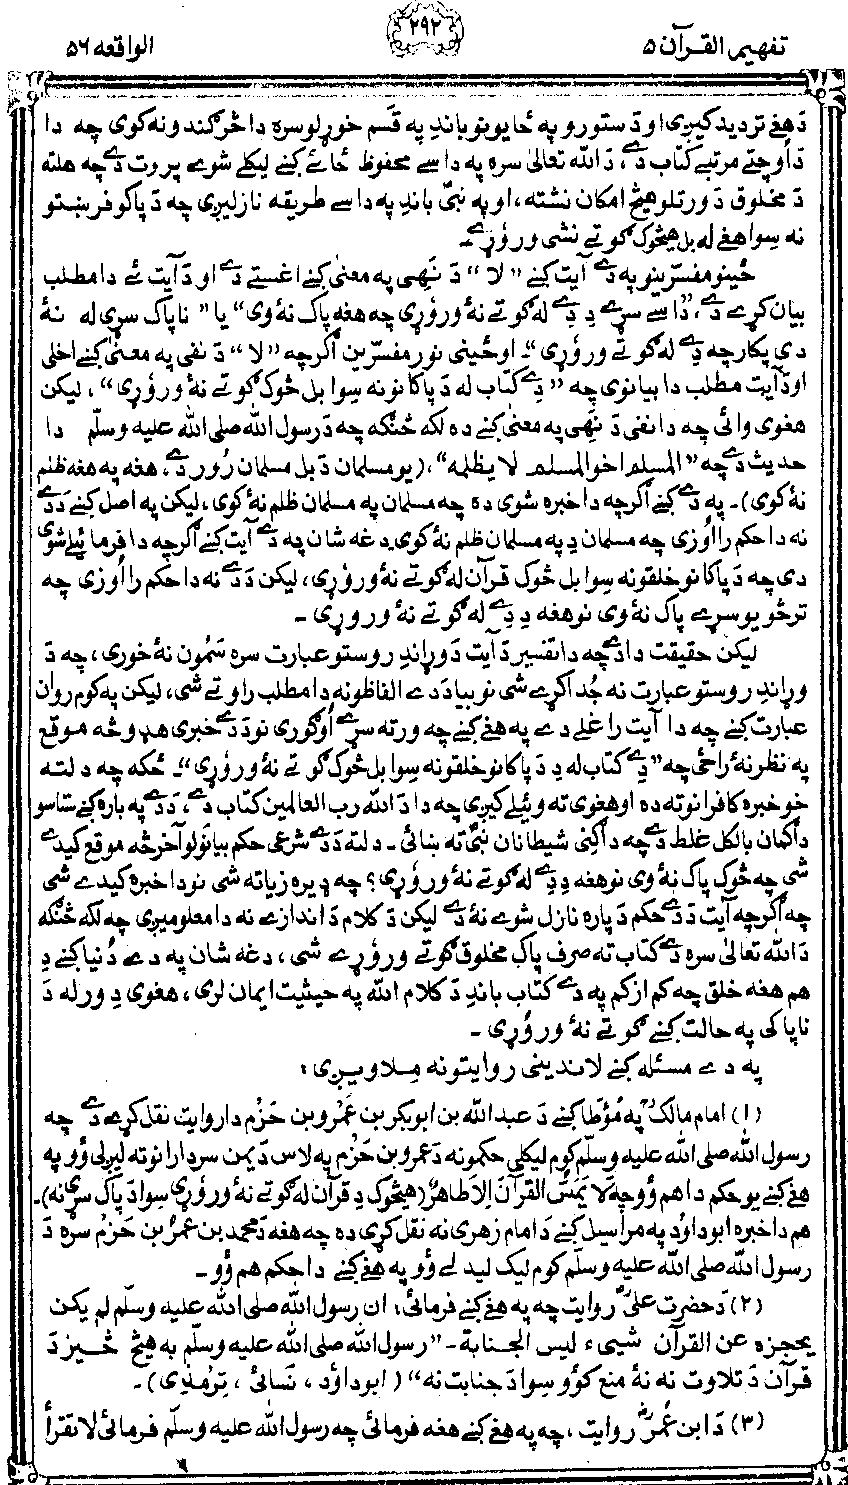 تفهيم القرآن ۵
۲۹۲
الواقعه ۵۶
دَهغې ترديد كيږي او دَ ستورو په ځايونو باندِ په قَسم خوړلو سره دا څرګندونه كوي چه دا
دَ اُوچتې مرتبې كتاب دے، دَ الله تعالیٰ سره په داسے محفوظ ځائے كښے ليكلے شوے پروت دے چه هلته
دَ مخلوق دَ ورتلو هيڅ امكان نشته، او په نبیؐ باندِ په داسے طريقه نازليږي چه دَ پاكو فرښتو
نه سوا هغے له بل هيڅوک ګوتے نشي وروړے۔
ځينو مفسّرينو په دے آيت كښے "لا" دَ نَهی په معنیٰ كښے اغستے دے او دَ آيت ئے دا مطلب
بيان كړے دے، "داسے سړے دِ دِے له ګوتے نهٔ وروړي چه هغه پاک نهٔ وي" يا "ناپاک سړي له نهٔ
دي پكار چه دِے له ګوتے وروړي"۔ او ځينې نور مفسّرين اګرچه "لا" دَ نفی په معنیٰ كښے اخلي
او دَ آيت مطلب دا بيانوي چه "دِے كتاب له دَ پاكانو نه سوا بل څوک ګوتے نهٔ وروړي"، ليكن
هغوي وائي چه دا نفی دَ نَهی په معنیٰ كښے ده لكه څنګه چه دَ رسول الله صلی الله عليه وسلّم دا
حديث دے چه "المسلم اخو المسلم لا يظلمه"، (يو مسلمان دَ بل مسلمان رُور دے، هغه په هغه ظلم
نهٔ كوي)۔ په دے كښے اګرچه دا خبره شوي ده چه مسلمان په مسلمان ظلم نهٔ كوي، ليكن په اصل كښے دَ دے
نه دا حكم رااُوزي چه مسلمان دِ په مسلمان ظلم نهٔ كوي۔ دغه شان په دے آيت كښے اګرچه دا فرمائيلے شوي
دي چه دَ پاكانو خلقو نه سوا بل څوک قرآن له ګوتے نهٔ وروړي، ليكن دَ دے نه دا حكم رااُوزي چه
ترڅو يو سړے پاک نهٔ وي نو هغه دِ دِے له ګوتے نهٔ وروړي۔
ليكن حقيقت دا دے چه دا تفسير دَ آيت دَ وړاندِ روستو عبارت سره سَمُون نهٔ خوري، چه دَ
وړاندِ روستو عبارت نه جُدا كړے شي نو بيا دَ دے الفاظو نه دا مطلب راوتے شي، ليكن په كوم روان
عبارت كښے چه دا آيت راغلے دے په هغے كښے چه ورته سړے اُوګوري نو دَ دے خبرې هډو څه موقع
په نظر نهٔ راځي چه "دِے كتاب له دِ دَ پاكانو خلقو نه سوا بل څوک ګوتے نهٔ وروړي"۔ ځكه چه دلته
خو خبره كافرانو ته ده او هغوي ته وئيلے كيږي چه دا دَ الله رب العالمين كتاب دے، دَ دے په باره كښے ستاسو
دا ګمان بالكل غلط دے چه دا ګني شيطانان نبیؐ ته بنائي۔ دلته دَ دے شرعي حكم بيانولو آخر څه موقع كيدے
شي چه څوک پاک نهٔ وي نو هغه دِ دِے له ګوتے نهٔ وروړي؟ چه ډيره زياته شي نو دا خبره كيدے شي
چه اګرچه آيت دَ دے حكم دَ پاره نازل شوے نهٔ دے ليكن دَ كلام دَ اندازے نه دا معلوميږي چه لكه څنګه
دَ الله تعالیٰ سره دے كتاب ته صرف پاک مخلوق ګوتے وروړے شي، دغه شان په دے دُنيا كښے دِ
هم هغه خلق چه كم ازكم په دے كتاب باندِ دَ كلام الله په حيثيت ايمان لري، هغوي دِ ورله دَ
ناپاكۍ په حالت كښے ګوتے نهٔ وروړي۔
په دے مسئله كښے لانديني روايتونه مِلاويږي:
(۱) امام مالکؒ په مُؤطا كښے دَ عبدالله بن ابوبكر بن عَمْرو بن حَزْم دا روايت نقل كړے دے چه
رسول الله صلی الله عليه وسلّم كوم ليكلي حكمونه دَ عَمرو بن حَزْم په لاس دَ يمن سردارانو ته ليږلي وُو په
هغے كښے يو حكم دا هم وُو چه لَا يَمَسُّ القرآنَ اِلّا طاهرٌ (هيڅوک دِ قرآن له ګوتے نهٔ وروړي سوا دَ پاک سړي نه)۔
هم دا خبره ابوداوُد په مراسيل كښے دَ امام زهری نه نقل كړي ده چه هغه دَ محمد بن عمرو بن حَزْم سره دَ
رسول الله صلی الله عليه وسلّم كوم ليک ليدلے وُو په هغے كښے دا حكم هم وُو۔
(۲) دَ حضرت علیؓ روايت چه په هغے كښے فرمائي: ان رسول الله صلی الله عليه وسلّم لم يكن
يحجزه عن القرآن شیء ليس الجنابة۔ "رسول الله صلی الله عليه وسلّم به هيڅ څيز دَ
قرآن دَ تلاوت نه نهٔ منع كوؤ سوا دَ جنابت نه" (ابوداوُد، نَسائی، تِرْمذی)۔
(۳) دَ ابن عُمرؓ روايت، چه په هغے كښے هغه فرمائي چه رسول الله عليه وسلّم فرمائي لا تقرأ